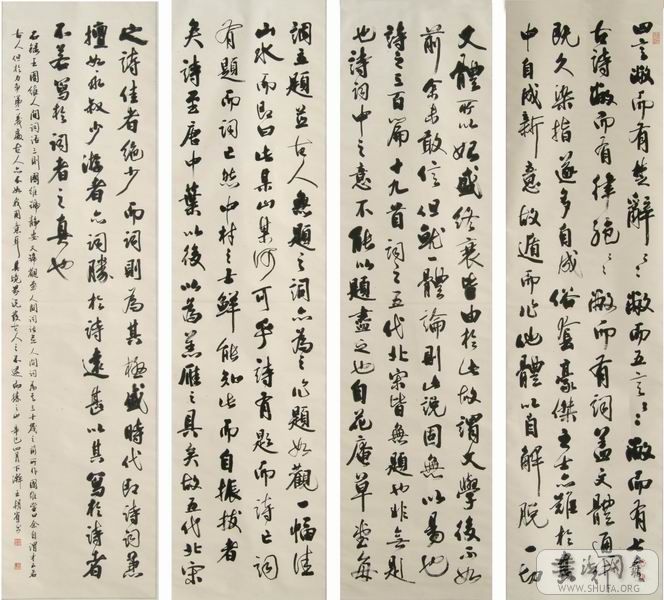 四言敝而有楚辭〻敝而五言〻敝而有七言
古詩敝而有律絕〻敝而有詞蓋文體通行
既久染指遂多自成俗套豪傑之士亦難於其
中自成新意故遁而作他體以自解脫一切
文體所以始盛終衰皆由於此故謂文學後不如
前余未敢信但就一體論則此說固無以易也
詩之三百篇十九首詞之五代北宋皆無題也非無題
也詩詞中之意不能以題盡之也自花庵草堂每
調立題並古人無題之詞亦為之作題如觀一幅佳
山水而即曰此某山某河可乎詩有題而詩亡詞
有題而詞亡然中材之士鮮能知此而自振拔者
矣詩至唐中葉以後以為羔雁之具矣故五代北宋
之詩佳者絕少而詞則為其極盛時代即詩詞兼
擅如永叔少游者亦詞勝於詩遠甚以其寫於詩者
不若寫於詞者之真也
右錄王國維人間詞話三則國維號靜安又號觀堂人間詞話 人間詞 三十歲之前所作國維 余自謂才不若
古人但於力爭第一義處古人亦不如我用意耳 其境界說發古人之未 辛巳四月下澣王 書
書法网
WWW.SHUFA.ORG